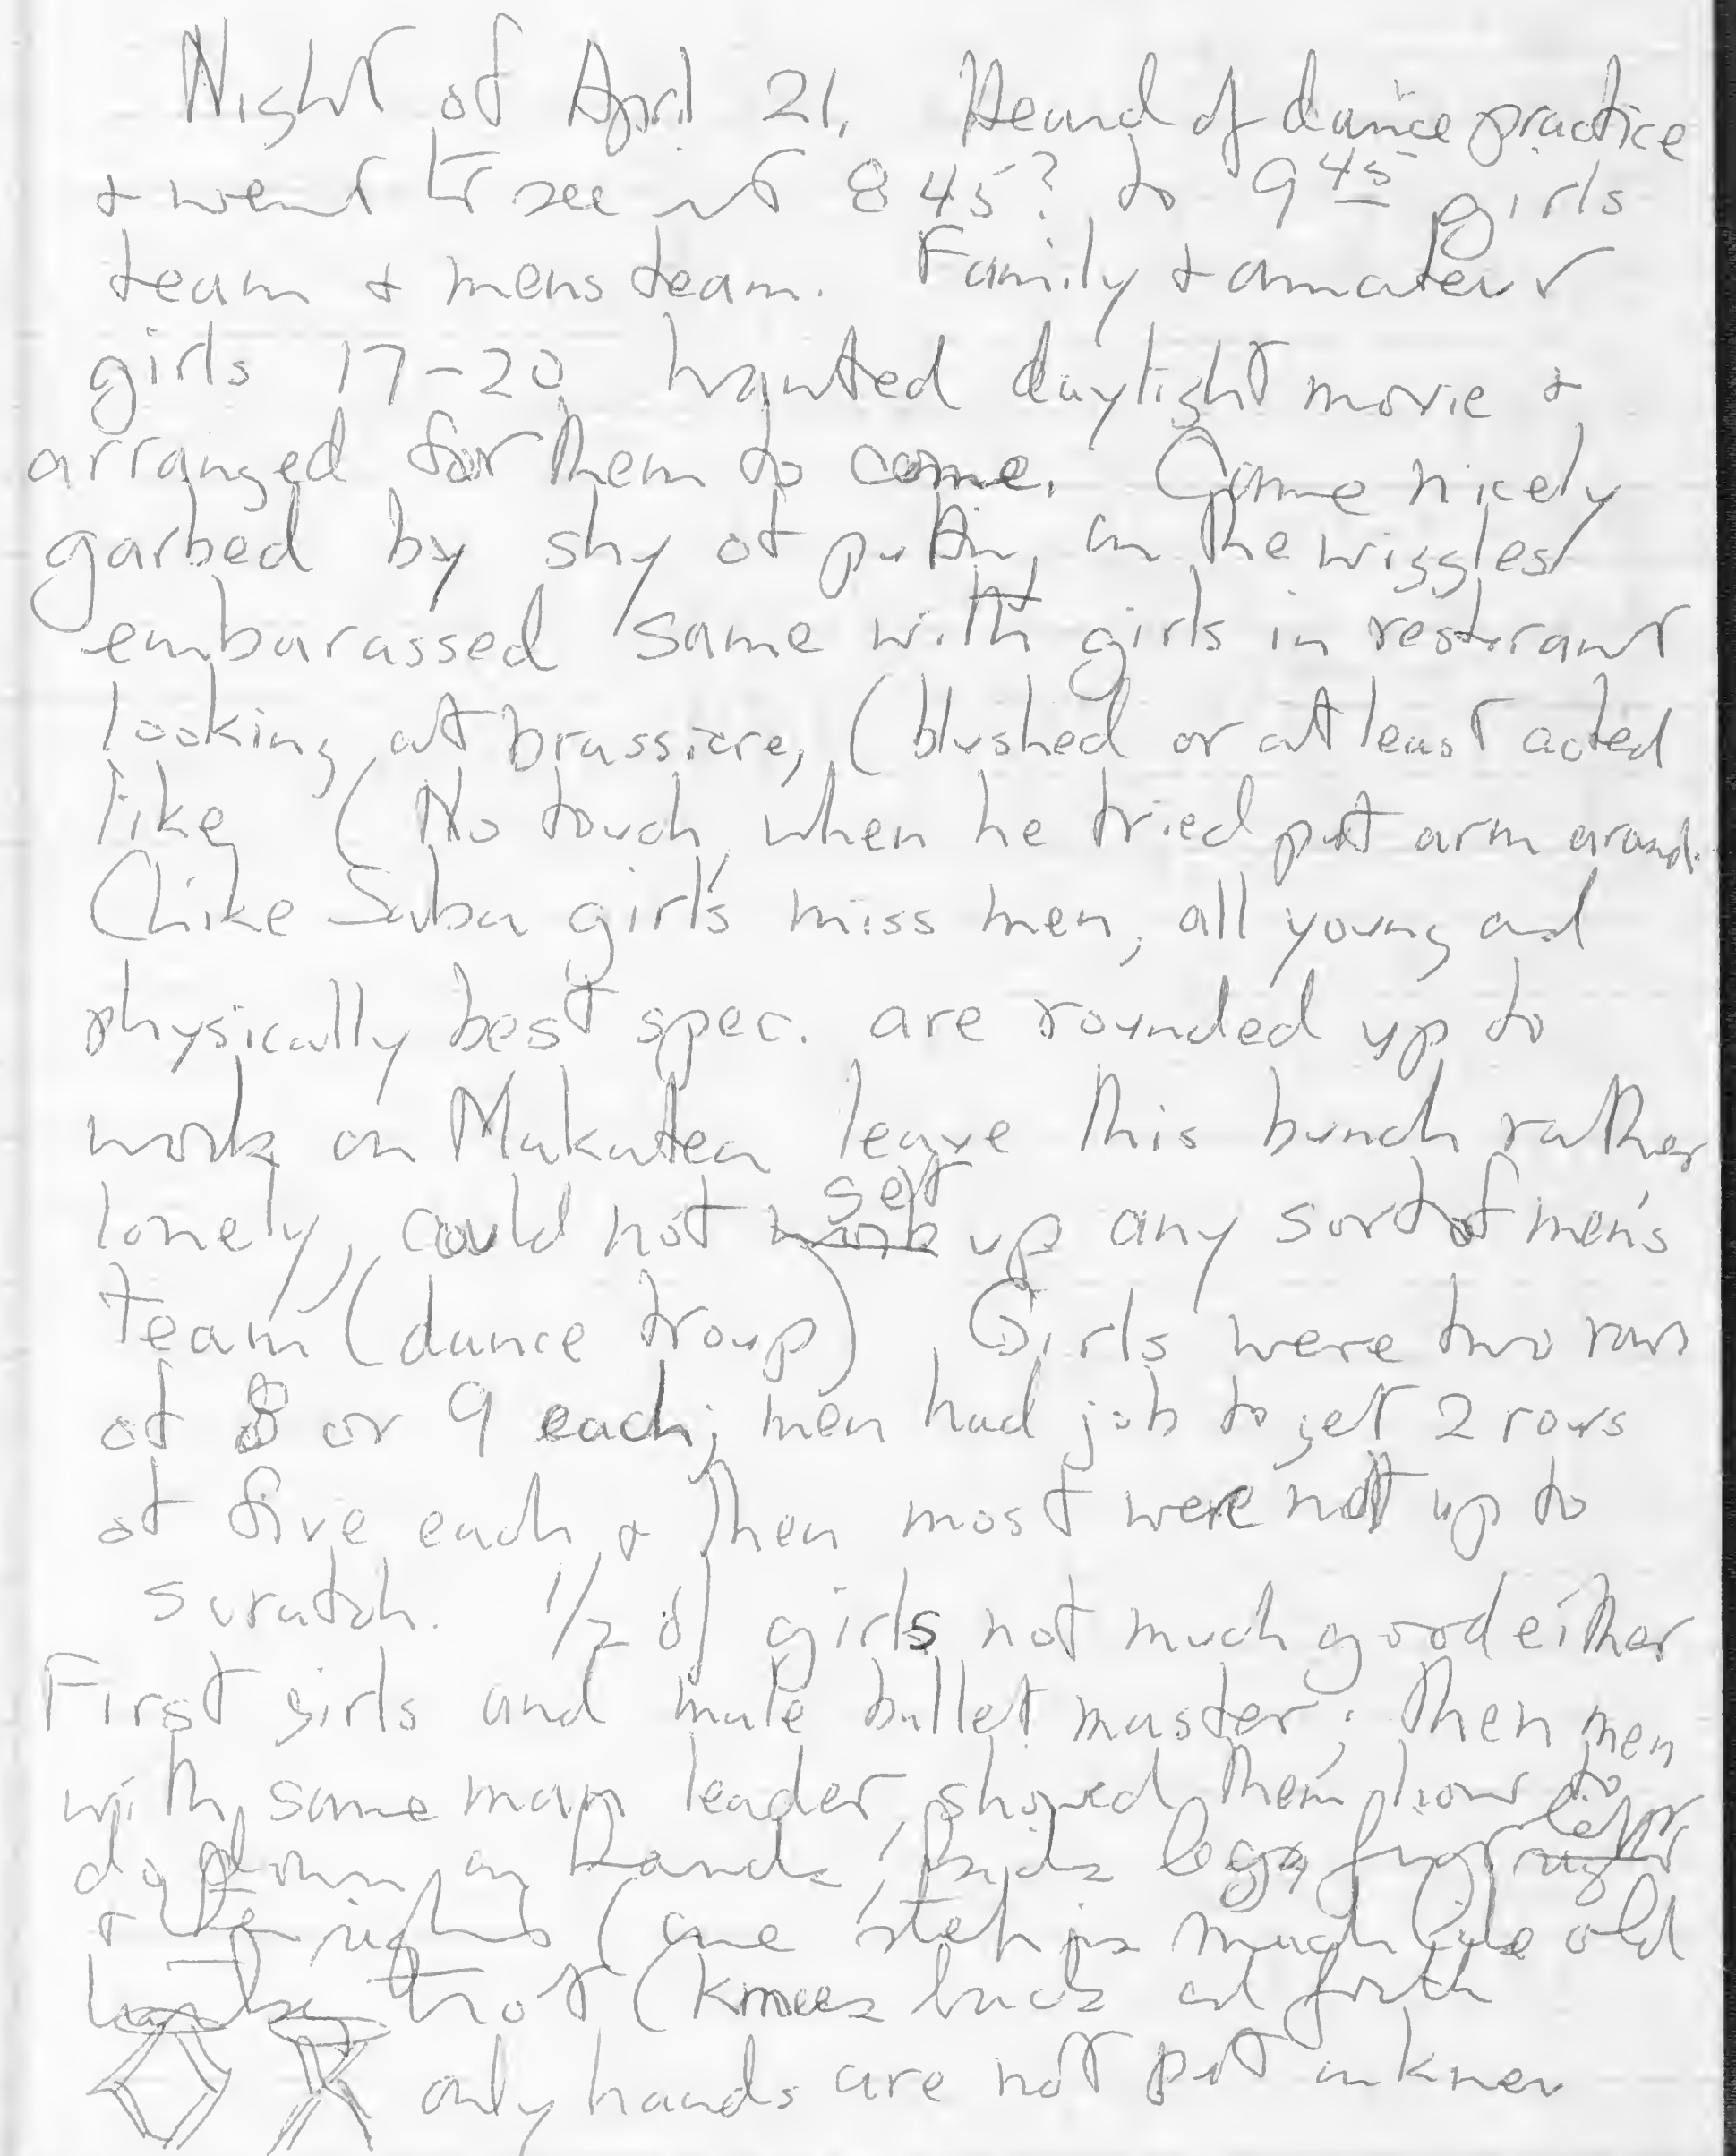 Night of April 21. Heard of dance practice
+ went to see it 8 45? to 9 45 girls
team + mens team. Family + amateur
girls 17-20 wanted daylight movie +
arranged for them to come. Came nicely
garbed by shy of puttin, on the wiggles
embarassed same with girls in resturant
looking at brassiere, (blushed or at least acted
like (No touch, when he tried put arm around.
(Like Saba girls miss men, all young and
physically best spec. are rounded up to
work on Makatea leave this bunch rather
lonely, could not work set up any sort of men's
team (dance troup) Girls were two rows
of 8 or 9 each; men had job to get 2 rows
of five each + then most were not up to
scratch. 1/2 of girls not much good either
First girls and male ballet master; then men
with same man leader, showed them how to
do down on hands, legs left
+ right (one step is much like old
trot (knees back and forth
only hands are not put on knee